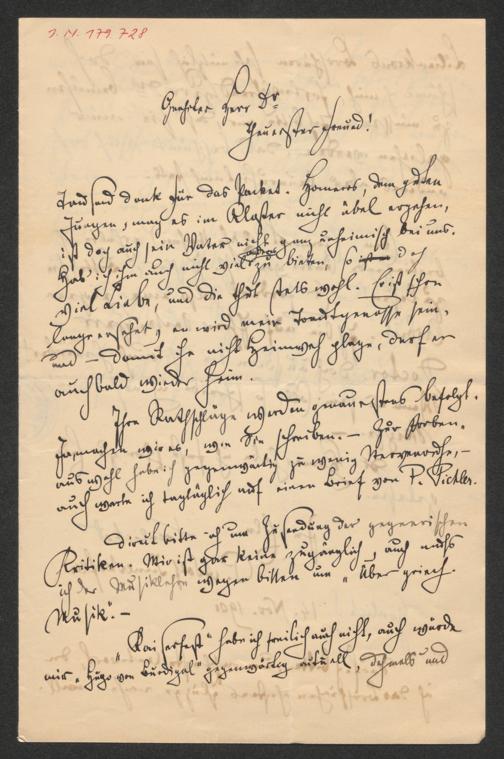 J.N. 179.728
Geehrter Herr Dr
Theuerster Freund!
Tausend Dank für das Packet. Homeros, dem guten
Jungen, mag es im Kloster nicht übel ergehen,
ist doch auch sein Vater nicht ganz unheimisch bei uns.
Hab ich ihm auch nicht viel zu bieten, so doch
viel Liebe, und die thut stets wohl. Er ist schon
lang ersehnt, er wird mein Genosse sein,
und – damit ihn nicht Heimweh plage, darf er
auch bald wieder heim.
Ihre Rathschläge werden genauestens befolgt.
machen wir es, wie Sie schreiben. – Zur
auswahl habe ich gegenwärtig zu wenig
auch warte ich tagtäglich auf einen Brief von P. Pichler.
bitte ich um Zusendung der gegnerischen
Kritiken. Mir ist gar keine zugänglich, auch muß
ich der Musiklehre wegen bitten um „Über griech.
Musik". –
„Kaiserfest" habe ich freilich auch nicht, auch würde
mir „Hugo von Burdigal" gegenwärtig aktuell, und